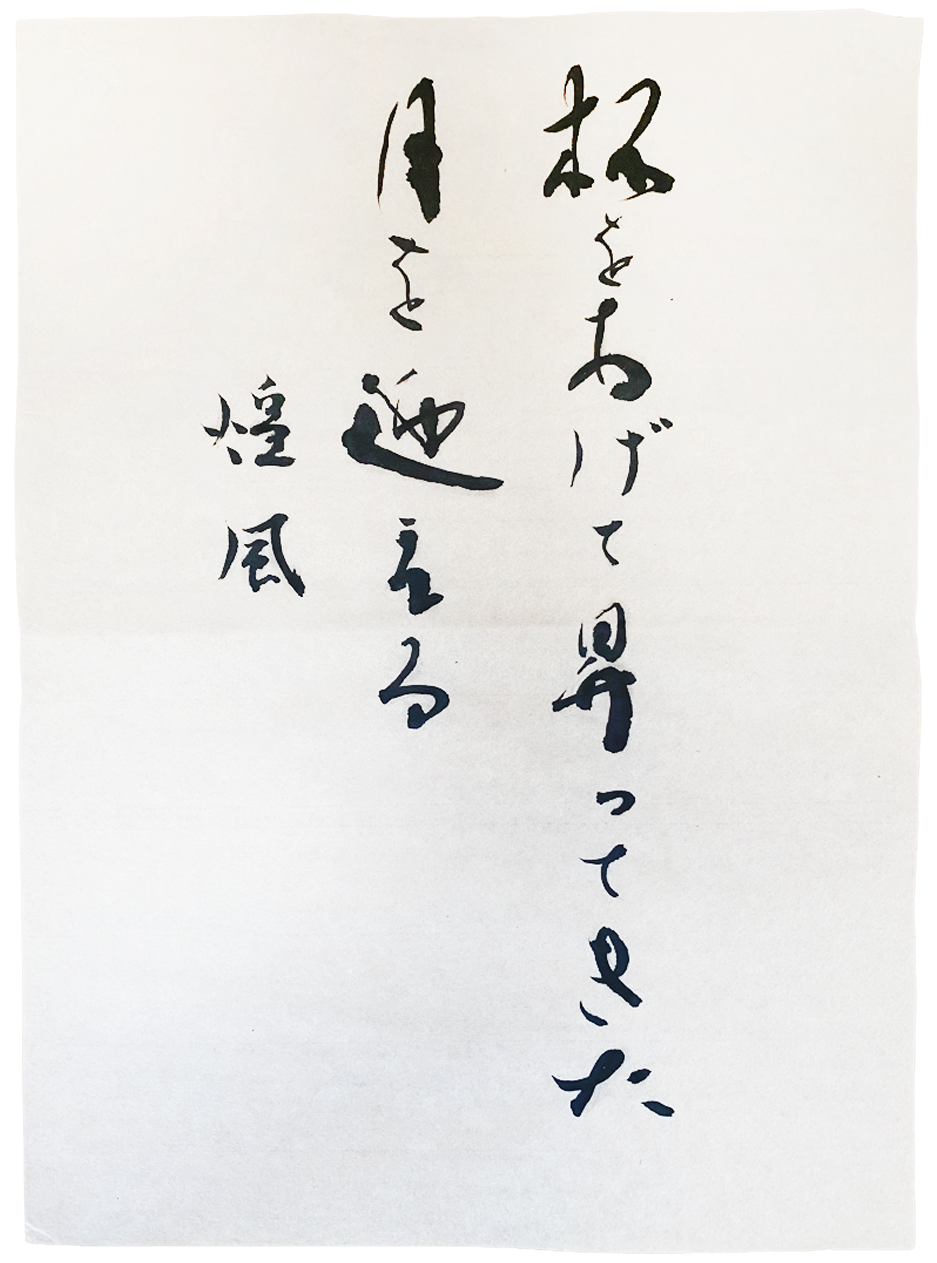 杯をあげて昇ってきた
月を迎える
煌風